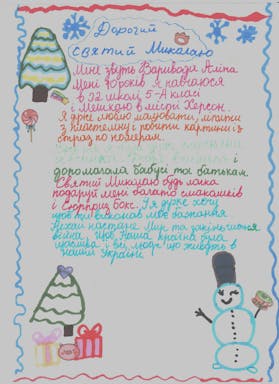 Дорогий
святий Миколаю
Мене звуть Варивода Аліна
Мені 10 років я навчаюся
в 32 школі 5-А класі
і Мешкаю в місті Херсон.
Я дуже люблю малювати, ліпити
з пластеліну і робити картини із
страз по номерам.
і
допомогала бабусі та батькам.
Святий Миколаю будь ласка
подаруй мені багато смаколиків
і Сюрприз бокс. І я дуже хочу
щоб ти виконав моє бажання
Нехай настане Мир та закінчиться
війна, щоб Наша країна була
щаслива і всі люди що живуть в
нашій Україні